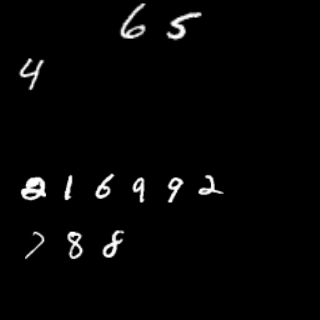 6 5
4
2 1 6 9 9 2
7 8 8